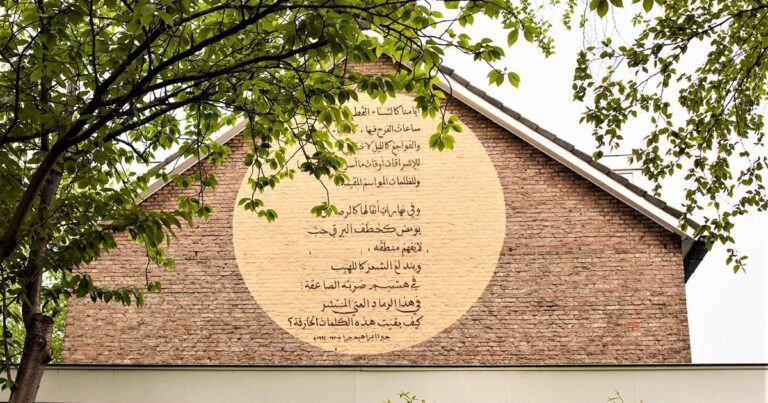 أيامنا كالشتاء القطـ
ساعات الفرح فيها
والفواجع كالليل لا
للإشراقات أوقات ما
وللظلمات المواسم المقيـ
وفي نهارات أثقالها كالرصـ
يومض كخطف البرق حب
لا يفهم منطقه ،
ويندلع الشعر كاللهيب
في هشيم ضربته الصاعقة :
في هذا الرماد العتي المنتشر
كيف بقيت هذه الكلمات الحارقة ؟
جبرا ابراهيم جبرا